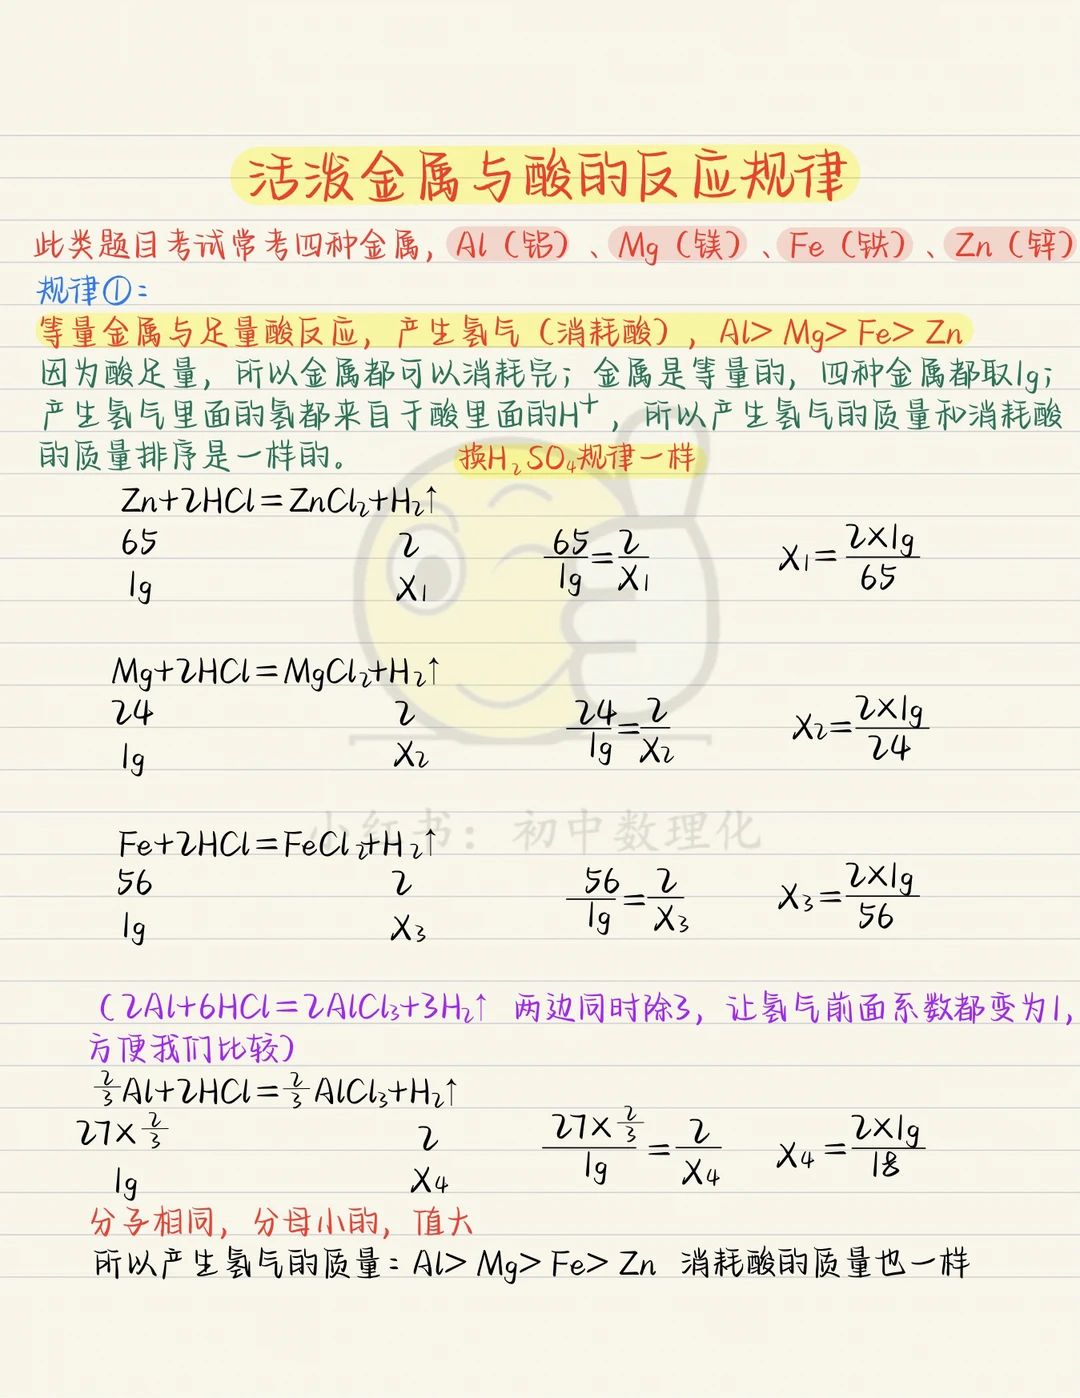 活泼金属与酸的反应规律
此类题目考试常考四种金属，Al（铝）、Mg（镁）、Fe（铁）、Zn（锌）
规律①：
等量金属与足量酸反应，产生氢气（消耗酸），Al> Mg> Fe> Zn
因为酸足量，所以金属都可以消耗完；金属是等量的，四种金属都取1g；
产生氢气里面的氢都来自于酸里面的H⁺，所以产生氢气的质量和消耗酸
的质量排序是一样的。 换H₂SO₄规律一样
Zn+2HCl=ZnCl₂+H₂↑
65 2 65/1g=2/X₁ X₁=2×1g/65
1g X₁
Mg+2HCl=MgCl₂+H₂↑
24 2 24/1g=2/X₂ X₂=2×1g/24
1g X₂
小红书：初中数理化
Fe+2HCl=FeCl₂+H₂↑
56 2 56/1g=2/X₃ X₃=2×1g/56
1g X₃
（2Al+6HCl=2AlCl₃+3H₂↑ 两边同时除3，让氢气前面系数都变为1，
方便我们比较）
2/3Al+2HCl=2/3AlCl₃+H₂↑
27×2/3 2 27×2/3/1g=2/X₄ X₄=2×1g/18
1g X₄
分子相同，分母小的，值大
所以产生氢气的质量：Al> Mg> Fe> Zn 消耗酸的质量也一样